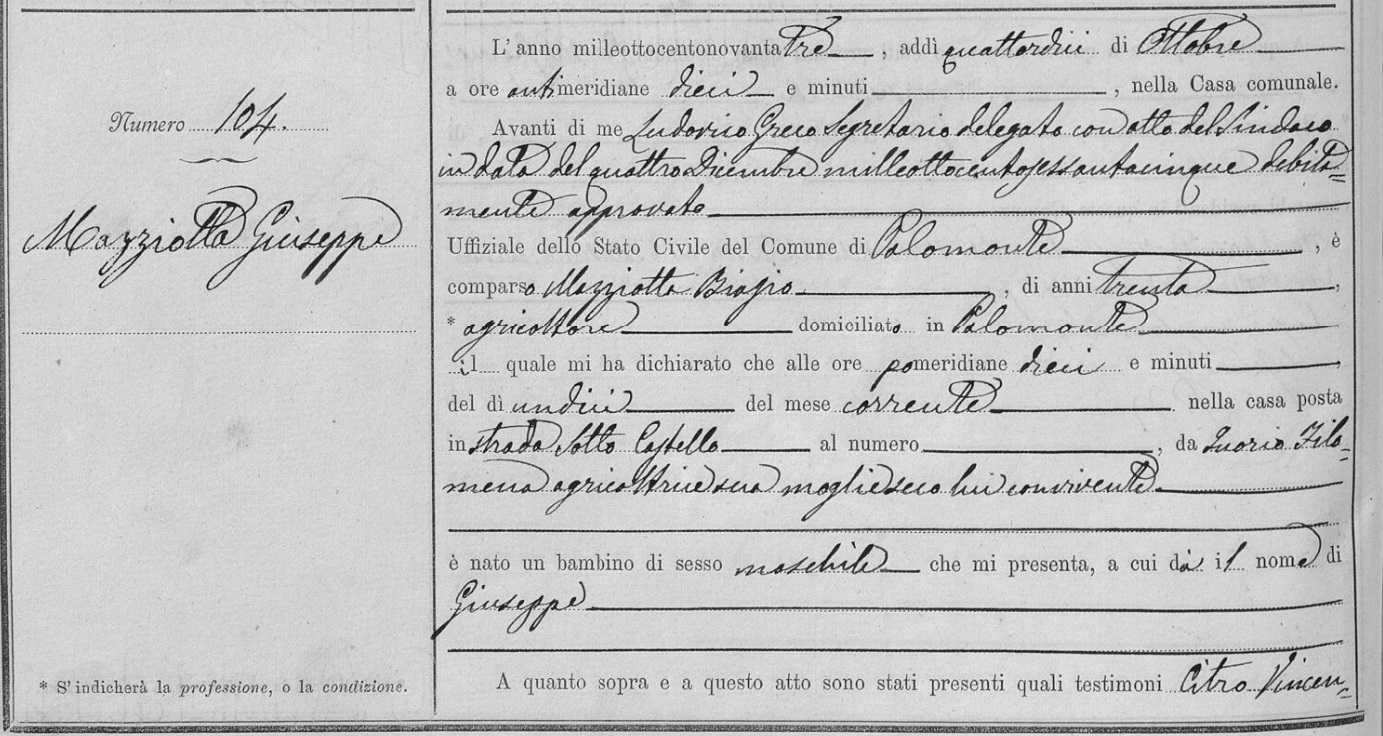 Numero 104.
Mazziotta Giuseppe
* S'indicherà la professione, o la condizione.
L'anno milleottocentonovantatre, addì quattordici di Ottobre
a ore antimeridiane dieci e minuti, nella Casa comunale.
Avanti di me Ludovico Greco Segretario delegato con atto del Sindaco
in data del quattro Dicembre milleottocentosessantacinque debita=
mente approvato
Uffiziale dello Stato Civile del Comune di Palomonte, è
comparso Mazziotta Biagio, di anni trenta,
* agricoltore domiciliato in Palomonte
il quale mi ha dichiarato che alle ore pomeridiane dieci e minuti,
del dì undici del mese corrente nella casa posta
in strada Sotto Castello al numero, da Iuorio Filo=
mena agricoltrice sua moglie seco lui convivente
è nato un bambino di sesso maschile che mi presenta, a cui dà il nome di
Giuseppe
A quanto sopra e a questo atto sono stati presenti quali testimoni Citro Vincen=